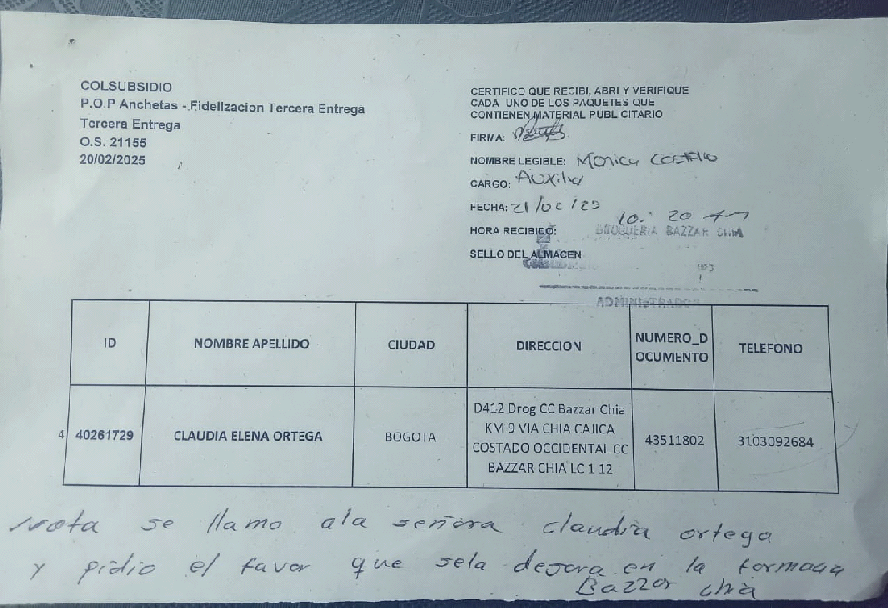 COLSUBSIDIO
P.O.P Anchetas - Fidelizacion Tercera Entrega
Tercera Entrega
O.S. 21155
20/02/2025
CERTIFICO QUE RECIBI, ABRI Y VERIFIQUE
CADA UNO DE LOS PAQUETES QUE
CONTIENEN MATERIAL PUBLICITARIO
FIRMA:
NOMBRE LEGIBLE: Monica
CARGO: Auxiliar
FECHA:
HORA RECIBIDO: 10:20 am
DROGUERIA BAZZAR CHIA
SELLO DEL ALMACEN
ADMINISTRADOR
ID NOMBRE APELLIDO CIUDAD DIRECCION NUMERO_D TELEFONO
OCUMENTO
D412 Drog CC Bazzar Chia
4 40261729 CLAUDIA ELENA ORTEGA BOGOTA KM 3 VIA CHIA CAJICA 43511802 3103092684
COSTADO OCCIDENTAL CC
BAZZAR CHIA LC 1 12
Nota se llamo ala señora claudia ortega
y pidio el favor que sela dejara en la formacia
Bazzar chia